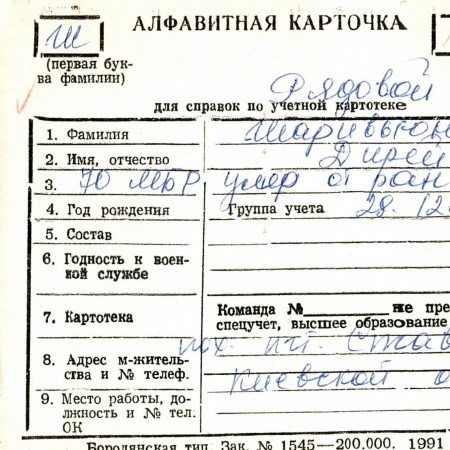 Ш
АЛФАВИТНАЯ КАРТОЧКА
(первая бук-
ва фамилии)
Рядовой
для справок по учетной картотеке
1. Фамилия
2. Имя, отчество
3. 70 МБР умер от ран
4. Год рождения Группа учета 28.12
5. Состав
6. Годность к воен-
ной службе
Команда № не пре
7. Картотека спецучет, высшее образование
пох. пгт. Став
8. Адрес м-житель-
ства и № телеф. Киевской о
9. Место работы, до-
лжность и № тел.
ОК
Бородянская тип. Зак. № 1545—200.000. 1991